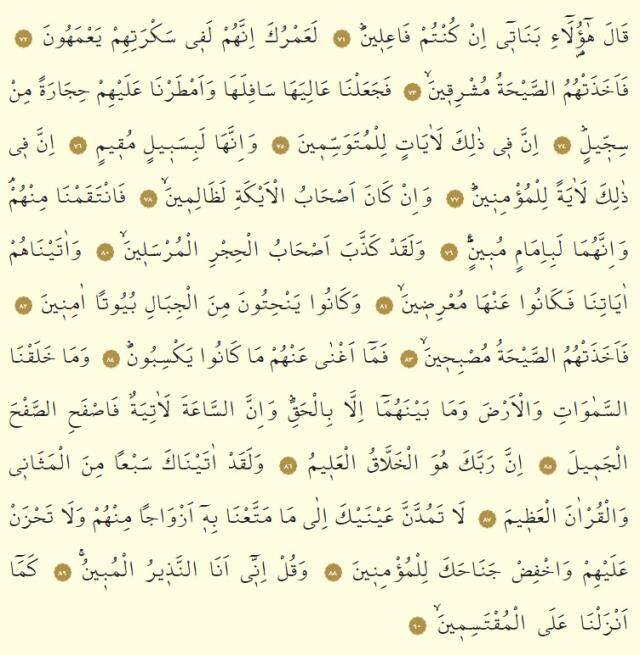 قَالَ هٰٓؤُ۬لَٓاءِ بَنَات۪ٓي اِنْ كُنْتُمْ فَاعِل۪ينَۜ ﴿٧١﴾ لَعَمْرُكَ اِنَّهُمْ لَف۪ي سَكْرَتِهِمْ يَعْمَهُونَ ﴿٧٢﴾
فَاَخَذَتْهُمُ الصَّيْحَةُ مُشْرِق۪ينَۙ ﴿٧٣﴾ فَجَعَلْنَا عَالِيَهَا سَافِلَهَا وَاَمْطَرْنَا عَلَيْهِمْ حِجَارَةً مِنْ
سِجّ۪يلٍۜ ﴿٧٤﴾ اِنَّ ف۪ي ذٰلِكَ لَاٰيَاتٍ لِلْمُتَوَسِّم۪ينَ ﴿٧٥﴾ وَاِنَّهَا لَبِسَب۪يلٍ مُق۪يمٍ ﴿٧٦﴾ اِنَّ ف۪ي
ذٰلِكَ لَاٰيَةً لِلْمُؤْمِن۪ينَۜ ﴿٧٧﴾ وَاِنْ كَانَ اَصْحَابُ الْاَيْكَةِ لَظَالِم۪ينَۙ ﴿٧٨﴾ فَانْتَقَمْنَا مِنْهُمْۢ
وَاِنَّهُمَا لَبِاِمَامٍ مُب۪ينٍۜ۟ ﴿٧٩﴾ وَلَقَدْ كَذَّبَ اَصْحَابُ الْحِجْرِ الْمُرْسَل۪ينَۙ ﴿٨٠﴾ وَاٰتَيْنَاهُمْ
اٰيَاتِنَا فَكَانُوا عَنْهَا مُعْرِض۪ينَۙ ﴿٨١﴾ وَكَانُوا يَنْحِتُونَ مِنَ الْجِبَالِ بُيُوتًا اٰمِن۪ينَ ﴿٨٢﴾
فَاَخَذَتْهُمُ الصَّيْحَةُ مُصْبِح۪ينَۙ ﴿٨٣﴾ فَمَٓا اَغْنٰى عَنْهُمْ مَا كَانُوا يَكْسِبُونَۜ ﴿٨٤﴾ وَمَا خَلَقْنَا
السَّمٰوَاتِ وَالْاَرْضَ وَمَا بَيْنَهُمَٓا اِلَّا بِالْحَقِّۜ وَاِنَّ السَّاعَةَ لَاٰتِيَةٌ فَاصْفَحِ الصَّفْحَ
الْجَم۪يلَ ﴿٨٥﴾ اِنَّ رَبَّكَ هُوَ الْخَلَّاقُ الْعَل۪يمُ ﴿٨٦﴾ وَلَقَدْ اٰتَيْنَاكَ سَبْعًا مِنَ الْمَثَان۪ي
وَالْقُرْاٰنَ الْعَظ۪يمَ ﴿٨٧﴾ لَا تَمُدَّنَّ عَيْنَيْكَ اِلٰى مَا مَتَّعْنَا بِه۪ٓ اَزْوَاجًا مِنْهُمْ وَلَا تَحْزَنْ
عَلَيْهِمْ وَاخْفِضْ جَنَاحَكَ لِلْمُؤْمِن۪ينَ ﴿٨٨﴾ وَقُلْ اِنّ۪ٓي اَنَا النَّذ۪يرُ الْمُب۪ينُۚ ﴿٨٩﴾ كَمَٓا
اَنْزَلْنَا عَلَى الْمُقْتَسِم۪ينَۙ ﴿٩٠﴾